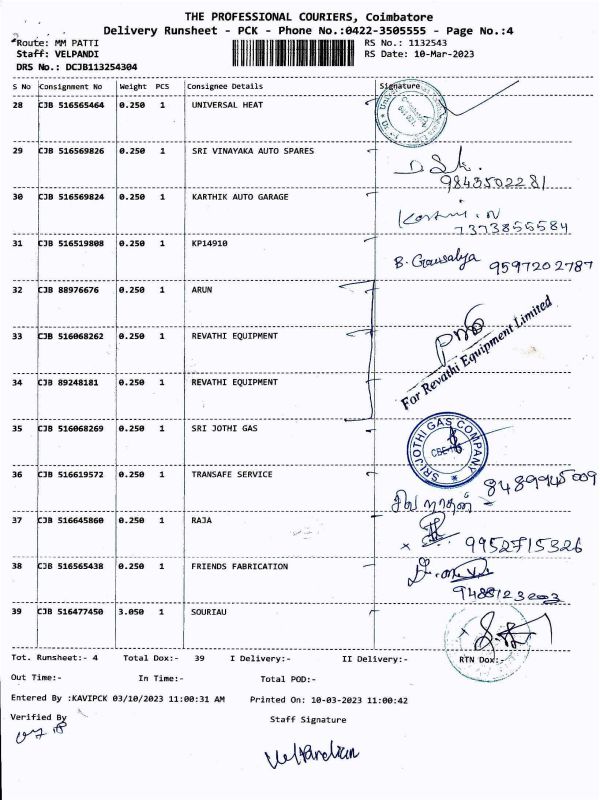 THE PROFESSIONAL COURIERS, Coimbatore
Delivery Runsheet - PCK - Phone No.:0422-3505555 - Page No.:4
Route: MM PATTI RS No.: 1132543
Staff: VELPANDI RS Date: 10-Mar-2023
DRS No.: DCJB113254304
S No Consignment No Weight PCS Consignee Details Signature
28 CJB 516565464 0.250 1 UNIVERSAL HEAT
29 CJB 516569826 0.250 1 SRI VINAYAKA AUTO SPARES
9843502281
30 CJB 516569824 0.250 1 KARTHIK AUTO GARAGE
7373855584
31 CJB 516519808 0.250 1 KP14910 B. Gowsalya 9597202787
32 CJB 88976676 0.250 1 ARUN
33 CJB 516068262 0.250 1 REVATHI EQUIPMENT
For Revathi Equipment Limited
34 CJB 89248181 0.250 1 REVATHI EQUIPMENT
35 CJB 516068269 0.250 1 SRI JOTHI GAS
SRI JOTHI GAS COMPANY
36 CJB 516619572 0.250 1 TRANSAFE SERVICE
37 CJB 516645860 0.250 1 RAJA
9952715326
38 CJB 516565438 0.250 1 FRIENDS FABRICATION
39 CJB 516477450 3.050 1 SOURIAU
Tot. Runsheet:- 4 Total Dox:- 39 I Delivery:- II Delivery:- RTN Dox:-
Out Time:- In Time:- Total POD:-
Entered By :KAVIPCK 03/10/2023 11:00:31 AM Printed On: 10-03-2023 11:00:42
Verified By Staff Signature
Velpandian